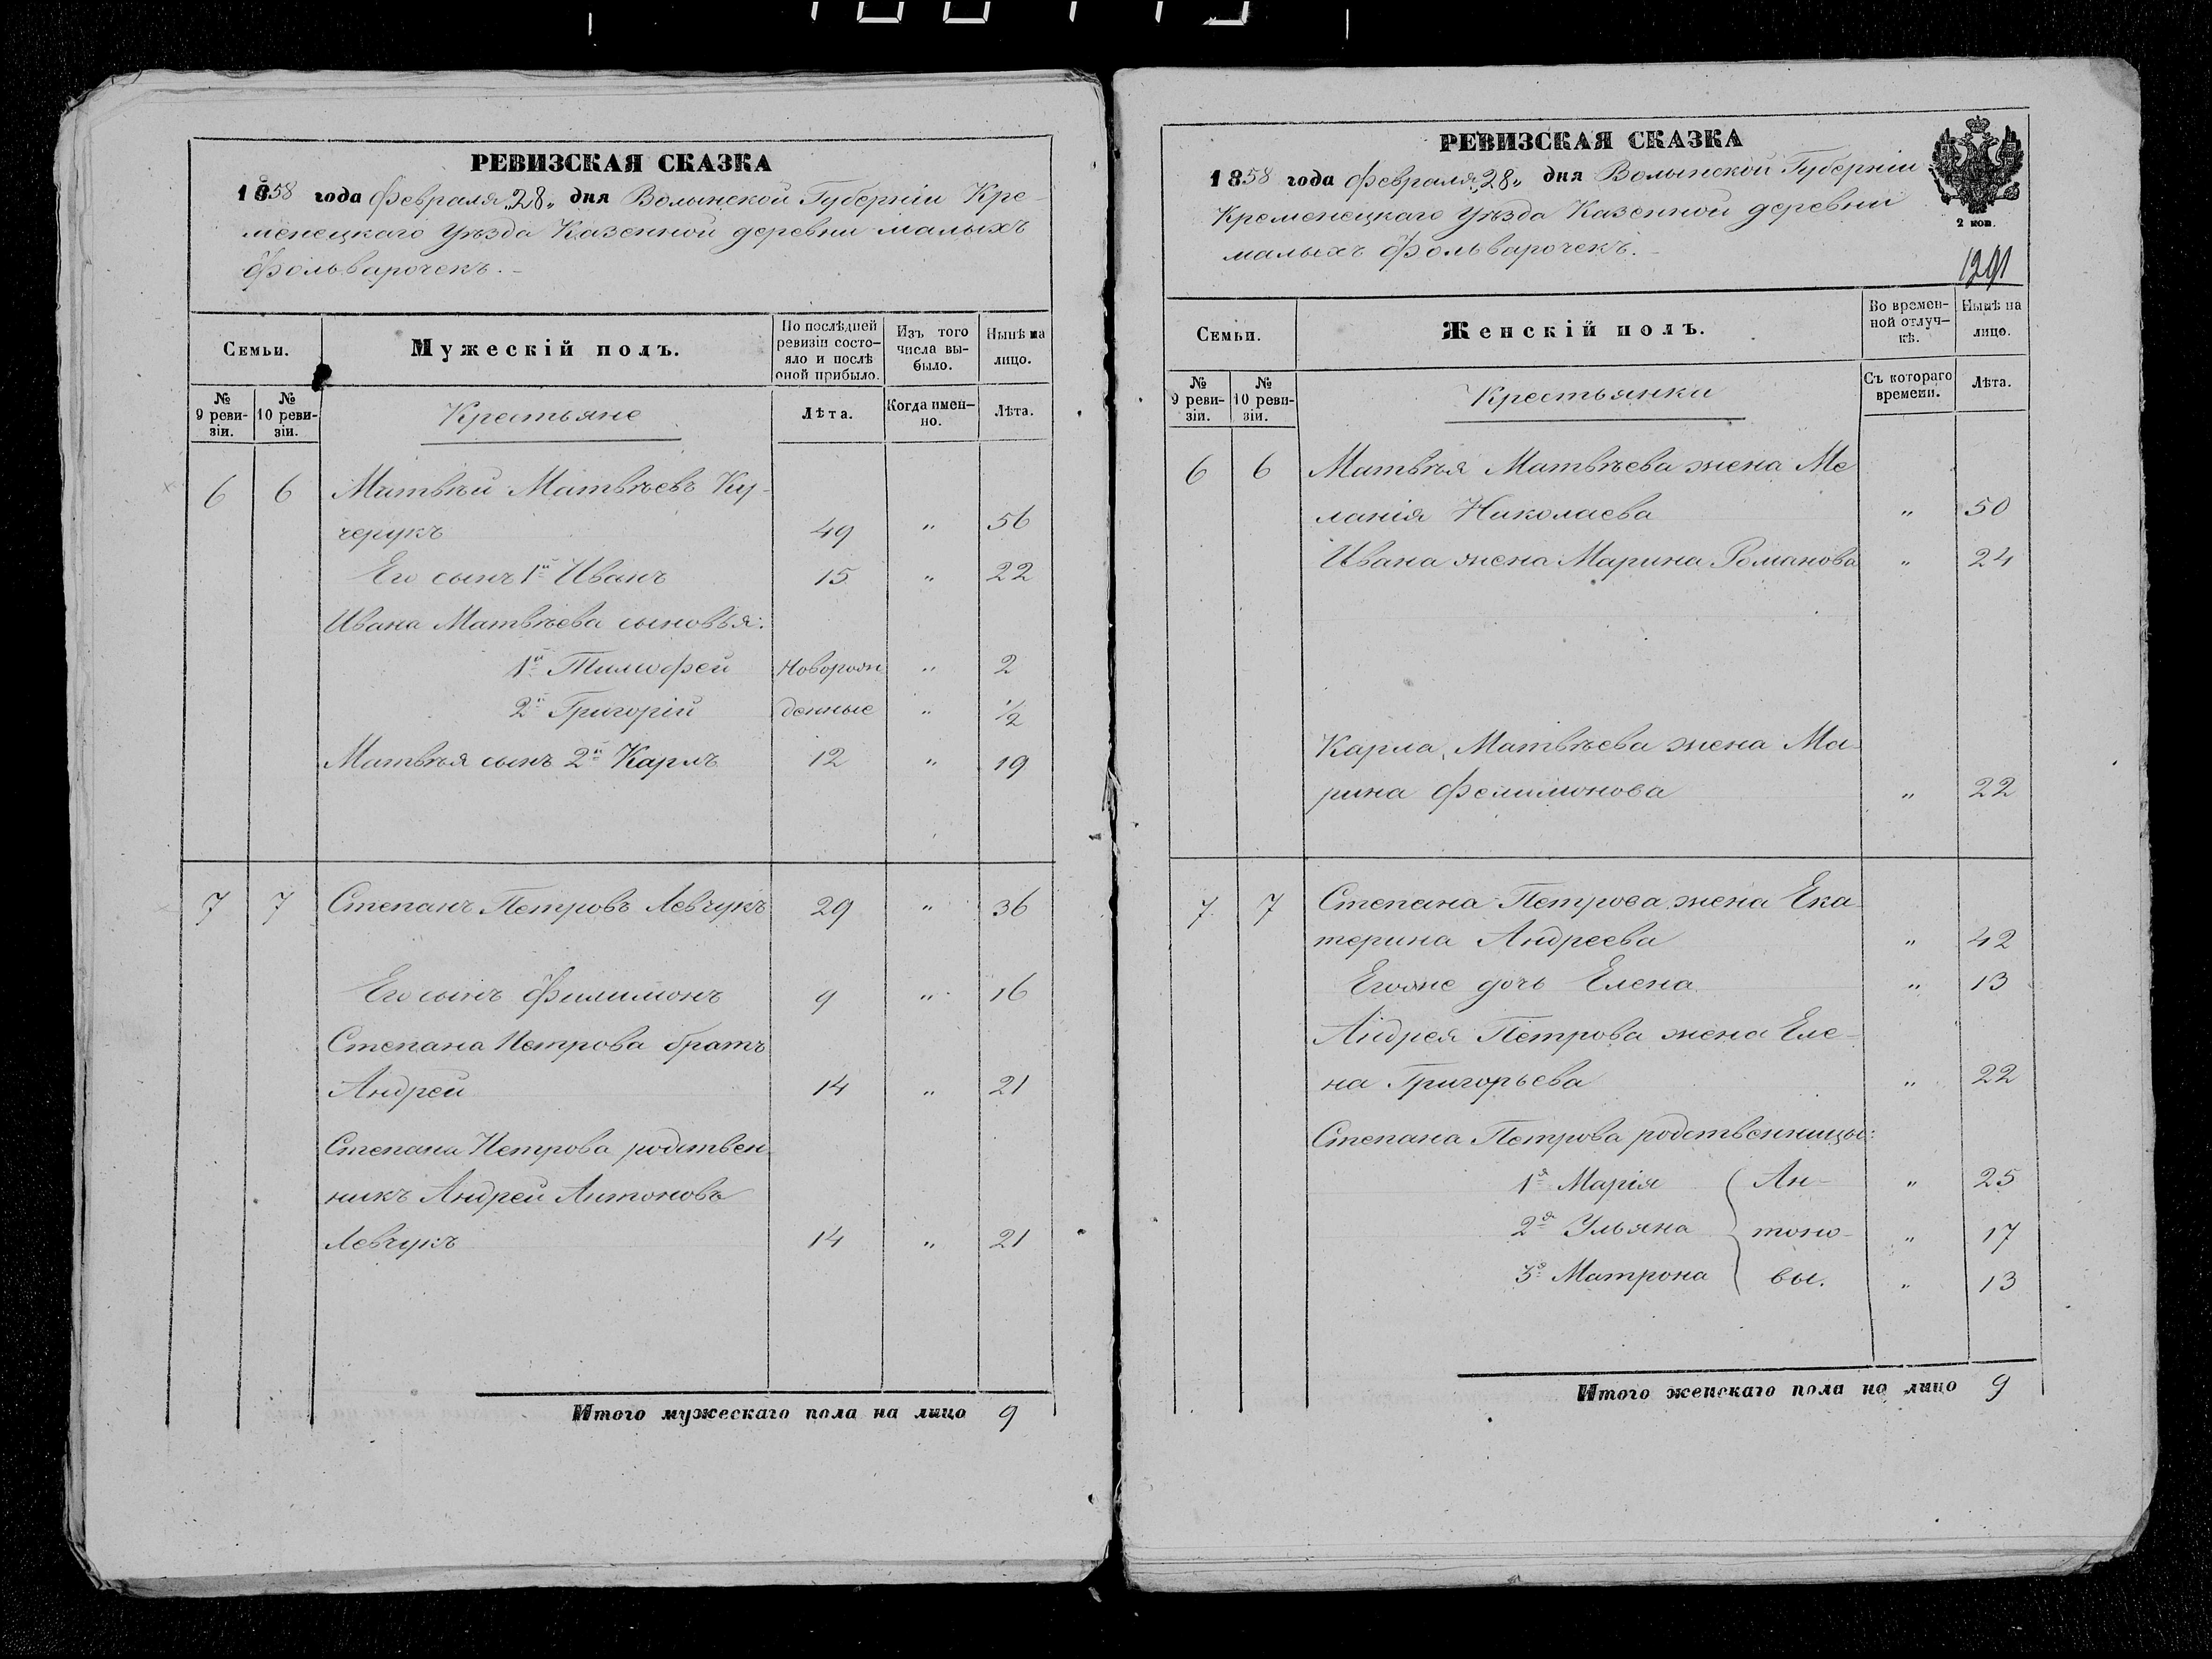 РЕВИЗСКАЯ СКАЗКА
1858 года Февраля „28„ дня Волынской Губерніи Кре-
менецкаго Уѣзда Казенной деревни малыхъ
Фольварочекъ.
Семьи.
Мужескій полъ.
По послѣдней ревизіи состо-
яло и послѣ оной прибыло.
Изъ того числа вы-
было.
Нынѣ на лицо.
№ 9 реви-
зіи.
№ 10 реви-
зіи.
Крестьяне
Лѣта.
Когда имен-
но.
Лѣта.
6 6 Матвѣй Матвѣевъ Ку-
черукъ 49 „ 56
Его сынъ 1й Иванъ 15 „ 22
Ивана Матвѣева сыновья:
1й Тимофей Новорож „ 2
2й Григорій денные „ ½
Матвѣя сынъ 2й Карлъ 12 „ 19
7 7 Степанъ Петровъ Левчукъ 29 „ 36
Его сынъ Филимонъ 9 „ 16
Степана Петрова братъ
Андрей 14 „ 21
Степана Петрова родствен
никъ Андрей Антоновъ
Левчукъ 14 „ 21
Итого мужескаго пола на лицо 9
РЕВИЗСКАЯ СКАЗКА
1858 года Февраля „28„ дня Волынской Губерніи
Кременецкаго Уѣзда Казенной деревни
малыхъ Фольварочекъ.
2 коп.
1291
Семьи.
Женскій полъ.
Во времен-
ной отлуч-
кѣ.
Нынѣ на лицо.
№ 9 реви-
зіи.
№ 10 реви-
зіи.
Крестьянки
Съ котораго времени.
Лѣта.
6 6 Матвѣя Матвѣева жена Ме
ланія Николаева „ 50
Ивана жена Марина Романова „ 24
Карла Матвѣева жена Ма-
рина Фелимонова „ 22
7 7 Степана Петрова жена Ека-
терина Андреева „ 42
Егоже дочь Елена „ 13
Андрея Петрова жена Еле-
на Григорьева „ 22
Степана Петрова родственницы:
1я Марія Ан- „ 25
2я Ульяна тоно- „ 17
3я Матрона вы. „ 13
Итого женскаго пола на лицо 9